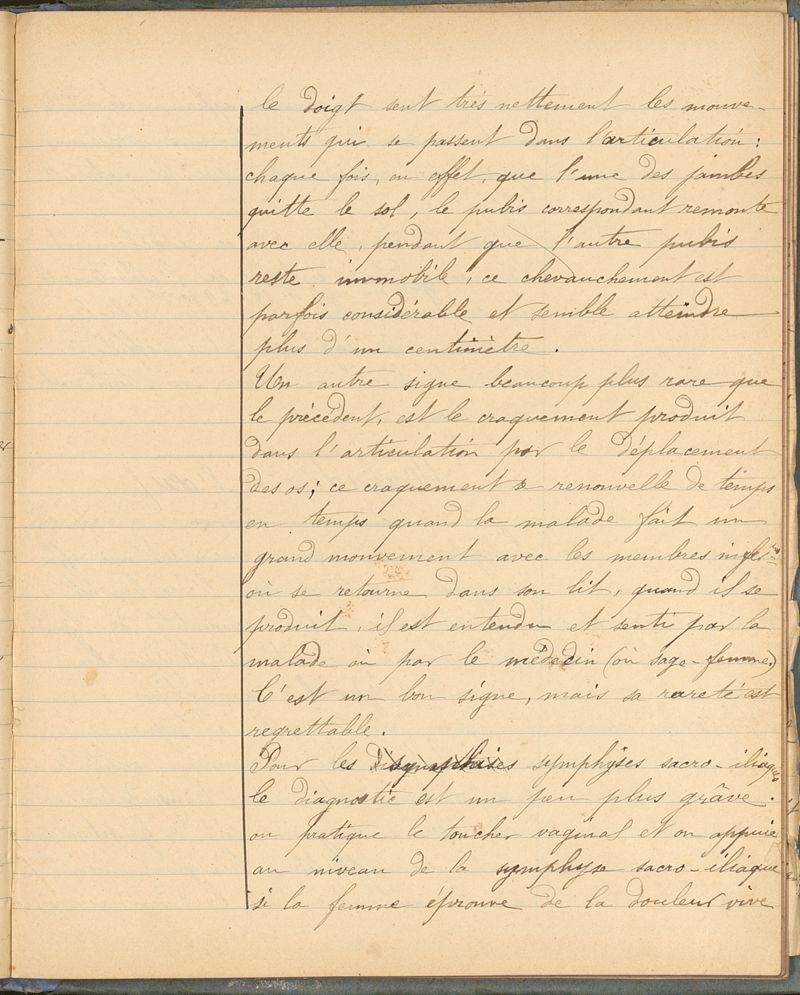 le doigt sent très nettement les mouve-
ments qui se passent dans l'articulation :
chaque fois, en effet, que l'une des jambes
quitte le sol, le pubis correspondant remonte
avec elle, pendant que l'autre pubis
reste immobile, ce chevauchement est
parfois considérable et semble atteindre
plus d'un centimètre.
Un autre signe beaucoup plus rare que
le précédent, est le craquement produit
dans l'articulation par le déplacement
des os; ce craquement se renouvelle de temps
en temps quand la malade fait un
grand mouvement avec les membres infer
où se retourne dans son lit, quand il se
produit, il est entendu et senti par la
malade où par le médecin (où sage-femme.)
C'est un bon signe, mais sa rareté est
regrettable.
Pour les symphyses sacro-iliaques
le diagnostic est un peu plus grâve.
on pratique le toucher vaginal et on appuie
au niveau de la symphyse sacro-iliaque
si la femme éprouve de la douleur vive